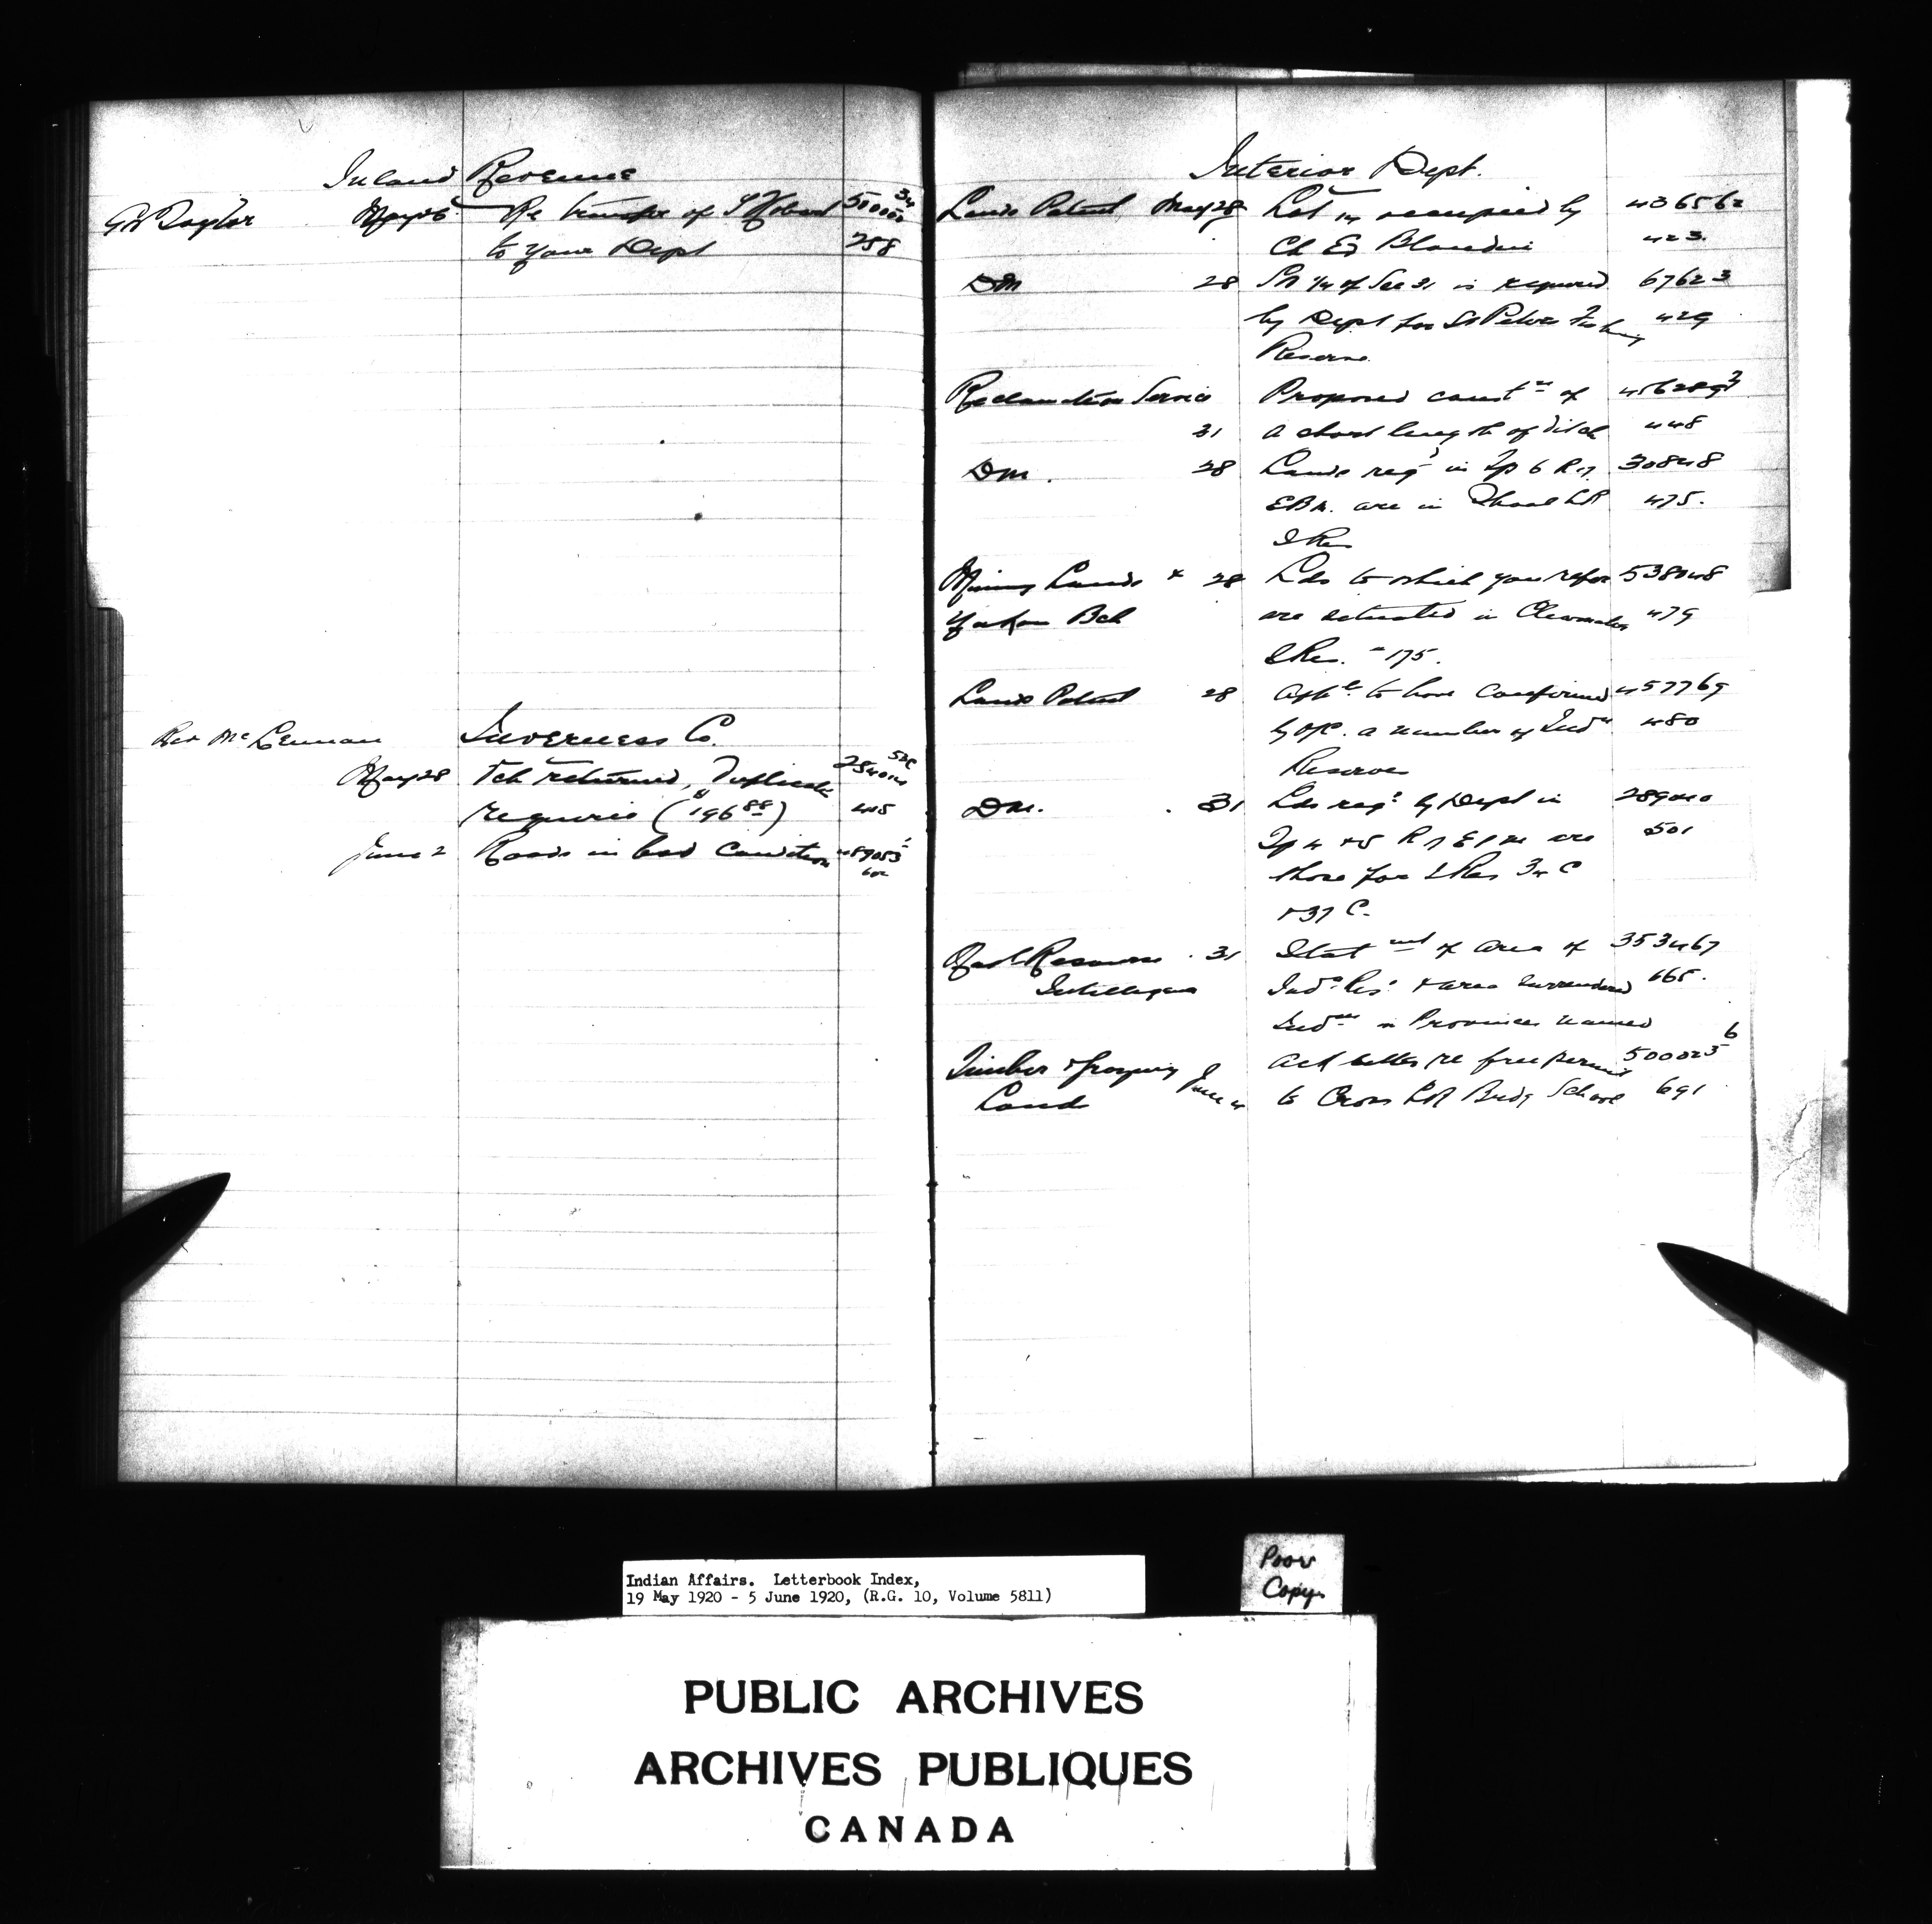 Inland Revenue
GW Taylor May 26 Re transfer of
to your Dept 288
Rev McLennan Inverness Co.
May 28 Tch returned, Duplicate
require (196 88) 445
June 2 Roads in bad condition
602
Interior Dept.
Lands Patent May 28 Lot 14 occupied by 436562
Ch Ed Blondin 423.
DM 28 1/4 of Sec 31 is required 67623
by Dept for St Peters Fishing 429
Reserve.
Reclamation Service Proposed const n of
31 a short length of ditch 448
DM. 28 Lands reqd in Tp 6 R 7. 30848
are in Shoal LK 475.
I Res
Mining Lands & 28 Lds to which you refer 538048
Yukon Bch are situated in Clearwater 479
I Res. 175.
Lands Patent 28 to have confirmed 457769
by O/C. a number of Indn 480
Reserves
DM. 31 Lds reqd by Dept in 289040
Tp 4 & 5 R 7 E 1 M are 501
those for I Res 34 C
& 37 C.
Natl Resources 31 Statement of area of 353467
Intelligence Indn Res & area surrendered 665.
Indn in Provinces named
Timber & Grazing June 4 Ack letter re free permit 500025 6
Lands to Cross LK Brdg School 691
Indian Affairs. Letterbook Index,
19 May 1920 - 5 June 1920, (R.G. 10, Volume 5811)
Poor
Copy
PUBLIC ARCHIVES
ARCHIVES PUBLIQUES
CANADA